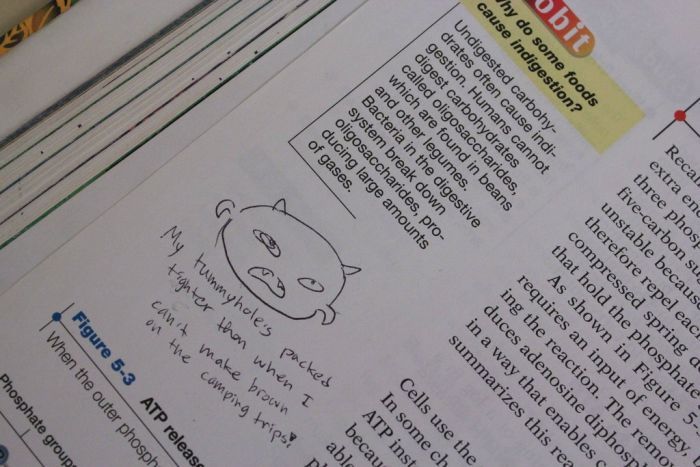 obit
Why do some foods
cause indigestion?
Undigested carbohy-
drates often cause indi-
gestion. Humans cannot
digest carbohydrates
called oligosaccharides,
which are found in beans
and other legumes.
Bacteria in the digestive
system break down
oligosaccharides, pro-
ducing large amounts
of gases.
My tummyhole's packed
tighter than when I
can't make brown
on the camping trips!
Figure 5-3 ATP release
When the outer phosph
Phosphate group
Reca
extra e
three phos
five-carbon su
unstable becau
therefore repel ea
compressed spring
that hold the phospha
As shown in Figure 5-
requires an input of energy,
ing the reaction. The remo
duces adenosine diphosph
in a way that enables
summarizes this rec
Cells use the
In some ch
ATP inst
becau
able